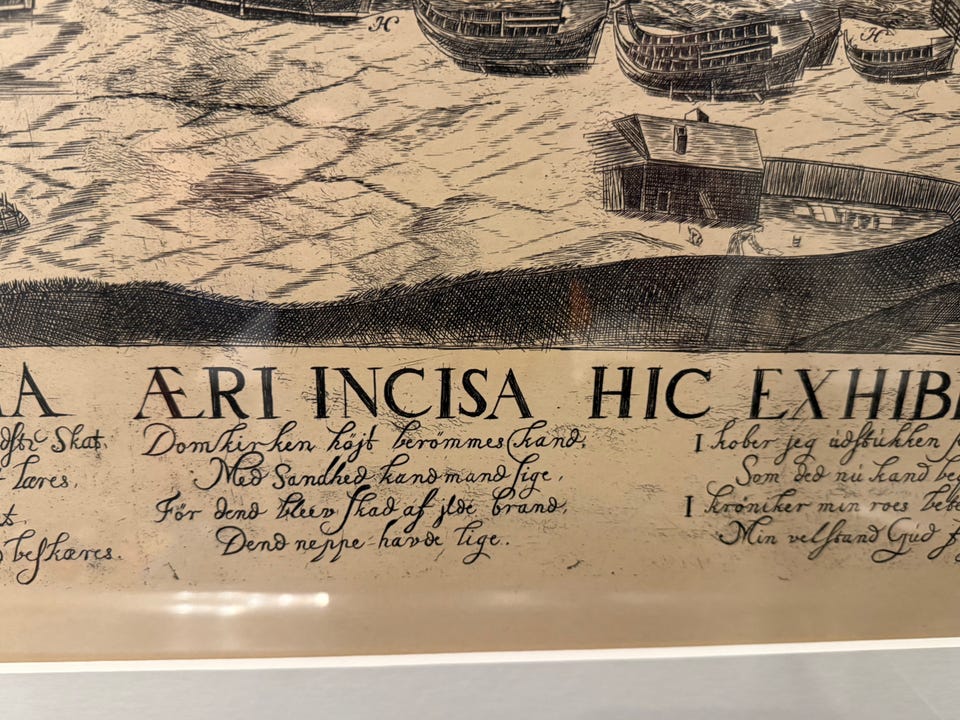 H
H
A ÆRI INCISA HIC EXHIB
Skat.
læres.
beskæres.
Domkirken højt berömmes kand,
Med Sandhed kand mand sige,
För dend bleev skad af jlde brand,
Dend neppe havde lige.
I kober jeg údstúkken
Som ded nú kand
I kröniker min roes
Min velstand Gúd